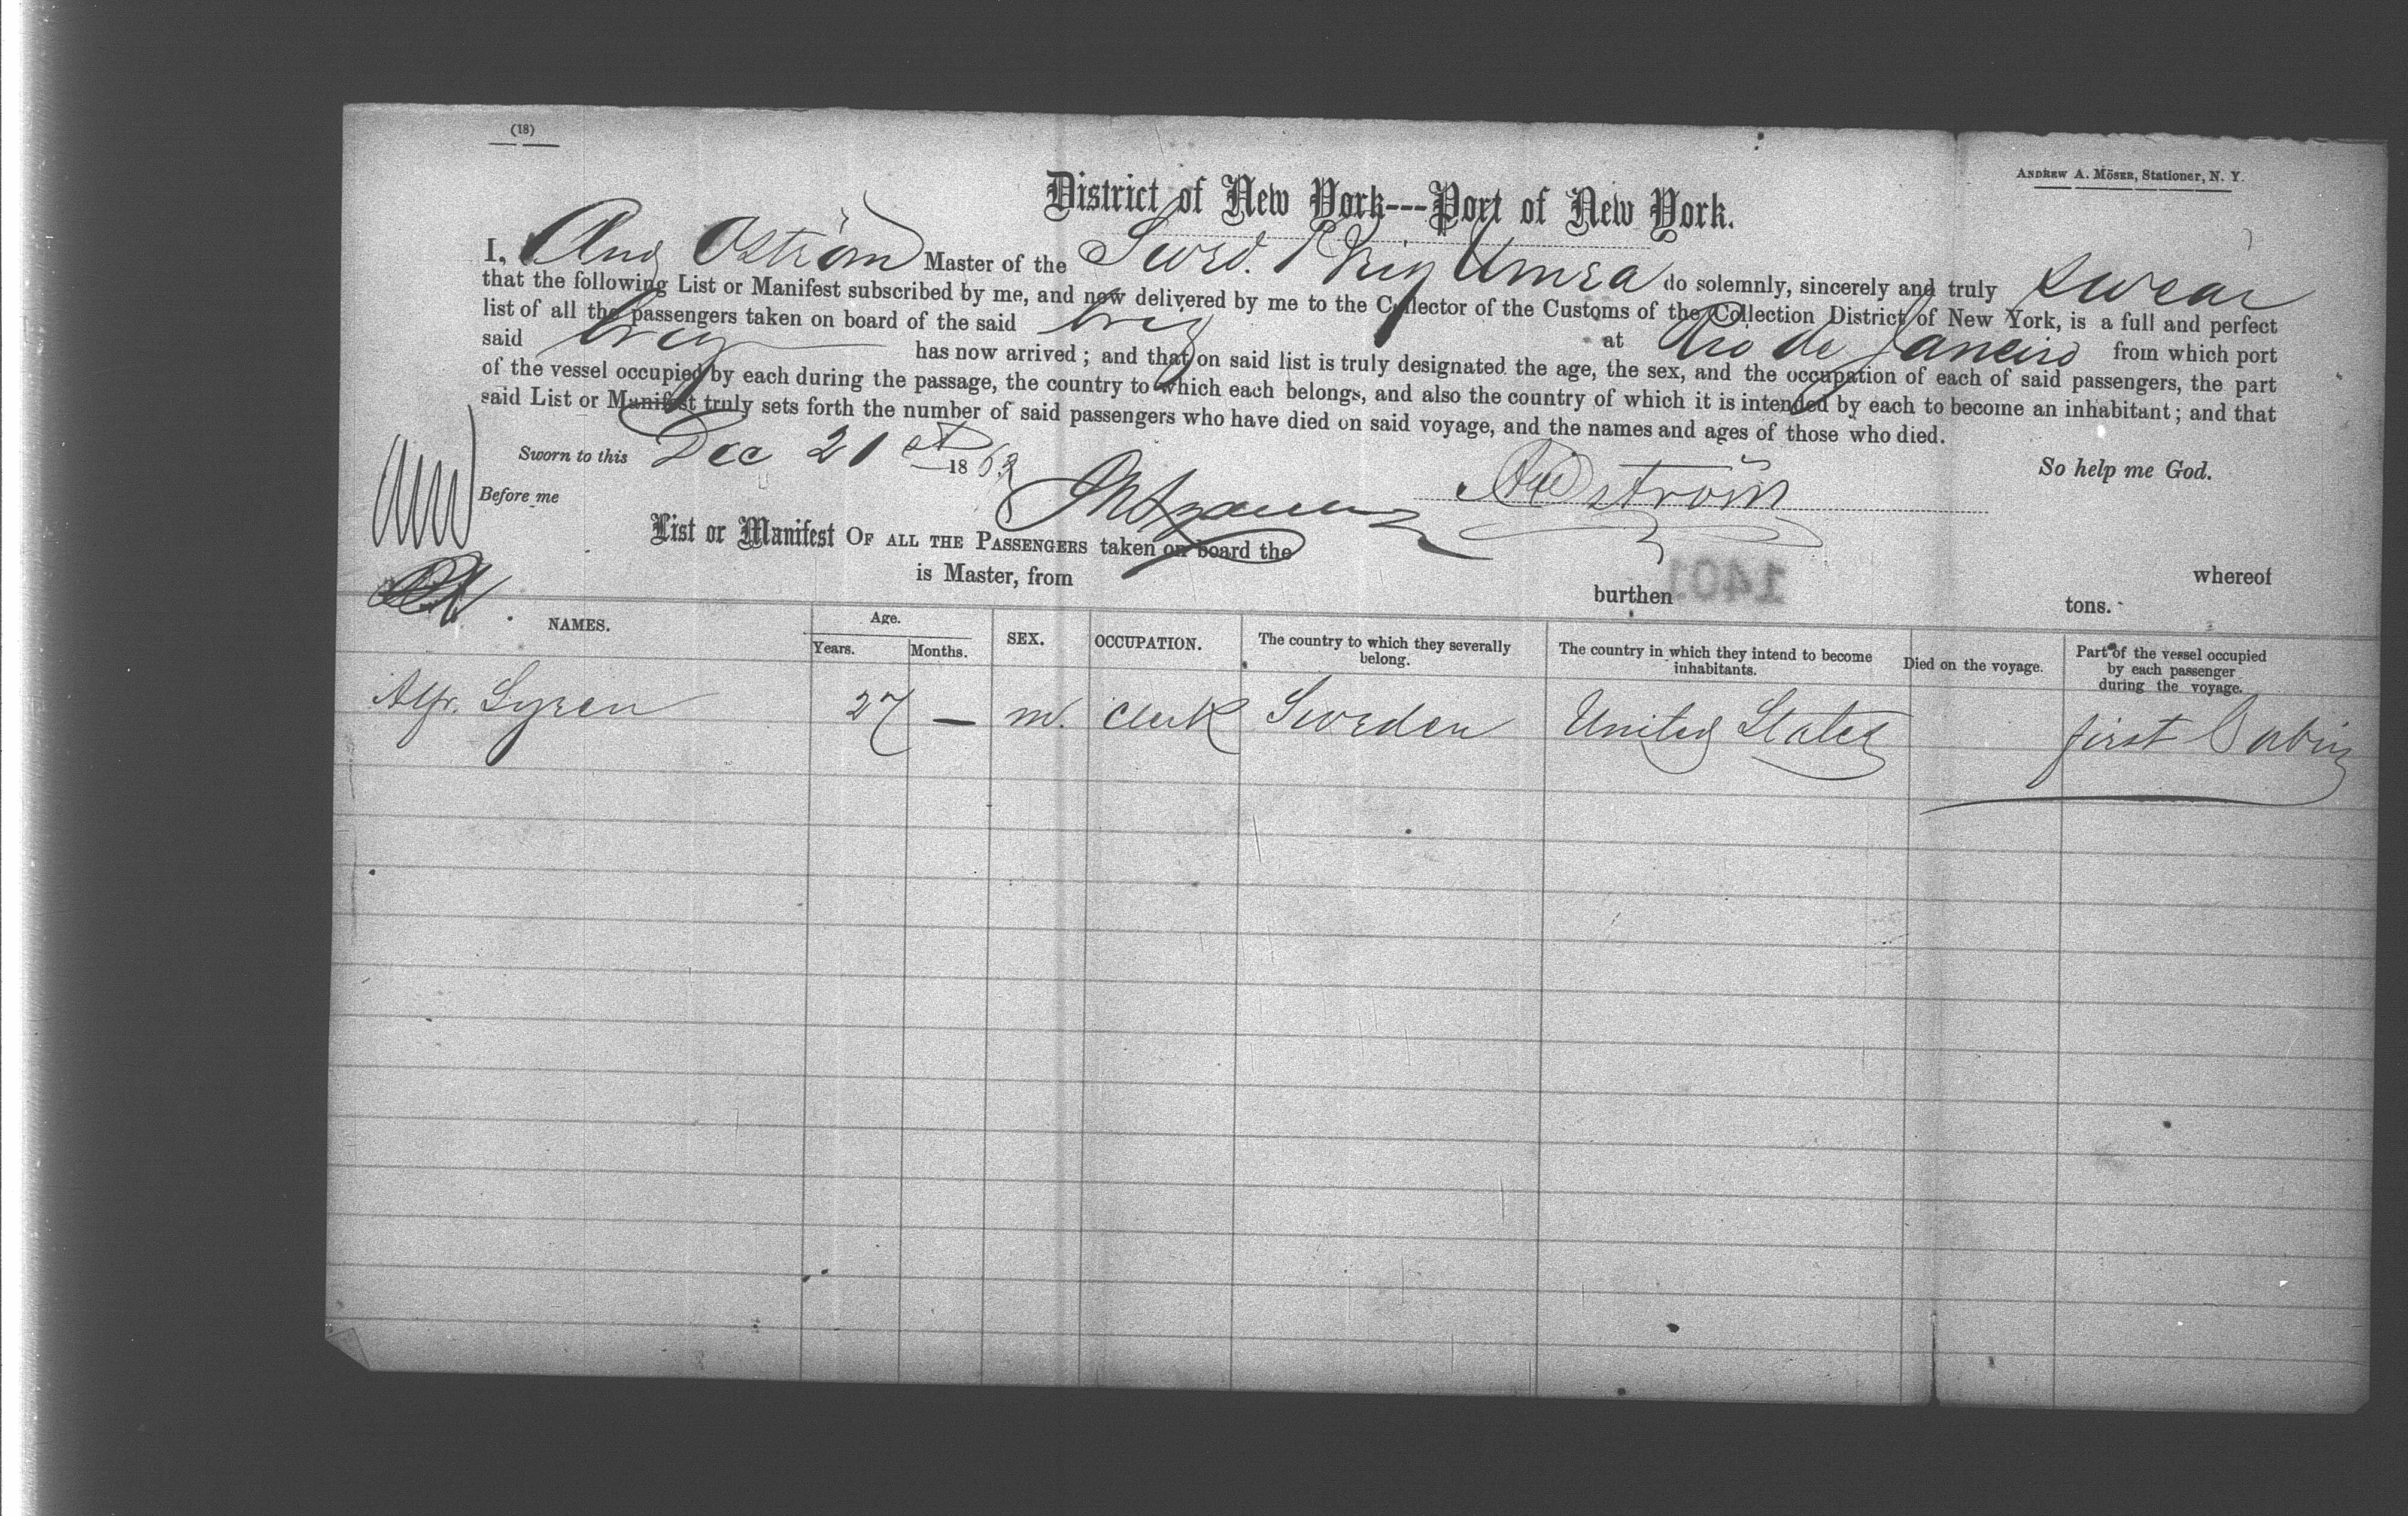 (18)
ANDREW A. MÖSER, Stationer, N. Y.
District of New York---Port of New York.
I, Aug Oström Master of the Swed. Brig Umea do solemnly, sincerely and truly swear
that the following List or Manifest subscribed by me, and now delivered by me to the Collector of the Customs of the Collection District of New York, is a full and perfect
list of all the passengers taken on board of the said brig at Rio de Janeiro from which port
said brig has now arrived; and that on said list is truly designated the age, the sex, and the occupation of each of said passengers, the part
of the vessel occupied by each during the passage, the country to which each belongs, and also the country of which it is intended by each to become an inhabitant; and that
said List or Manifest truly sets forth the number of said passengers who have died on said voyage, and the names and ages of those who died.
Sworn to this Dec 21st 1863 So help me God.
Before me
List or Manifest OF ALL THE PASSENGERS taken on board the whereof
is Master, from burthen tons.
1401
NAMES. Age. SEX. OCCUPATION. The country to which they severally belong. The country in which they intend to become inhabitants. Died on the voyage. Part of the vessel occupied by each passenger during the voyage.
Years. Months.
Alfr. Lyren 27 — m. clerk Sweden United States first Cabin